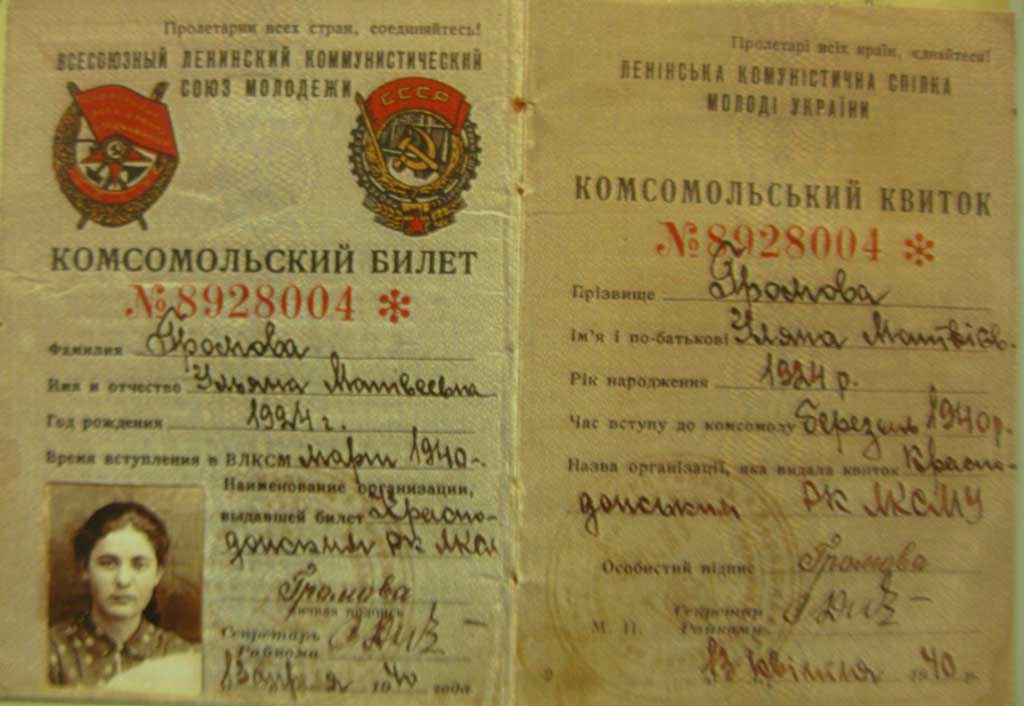 Пролетарии всех стран, соединяйтесь!
ВСЕСОЮЗНЫЙ ЛЕНИНСКИЙ КОММУНИСТИЧЕСКИЙ
СОЮЗ МОЛОДЕЖИ
СССР
КОМСОМОЛЬСКИЙ БИЛЕТ
№8928004 *
Фамилия Громова
Имя и отчество Ульяна Матвеевна
Год рождения 1924 г.
Время вступления в ВЛКСМ март 1940
Наименование организации,
выдавшей билет Красно-
донским РК ЛКСМ
Громова
Личная подпись
Секретарь
Райкома
13 апреля 1940 года
Пролетарі всіх країн, єднайтеся!
ЛЕНІНСЬКА КОМУНІСТИЧНА СПІЛКА
МОЛОДІ УКРАЇНИ
КОМСОМОЛЬСЬКИЙ КВИТОК
№8928004 *
Прізвище Громова
Ім'я і по-батькові Уляна Матвіїв-
Рік народження 1924 р.
Час вступу до комсомолу Березень 1940р.
Назва організації, яка видала квиток Красно-
донським РК ЛКСМУ
Особистий підпис Громова
Секретар
М. П. Райкому
13 квітня 1940 р.